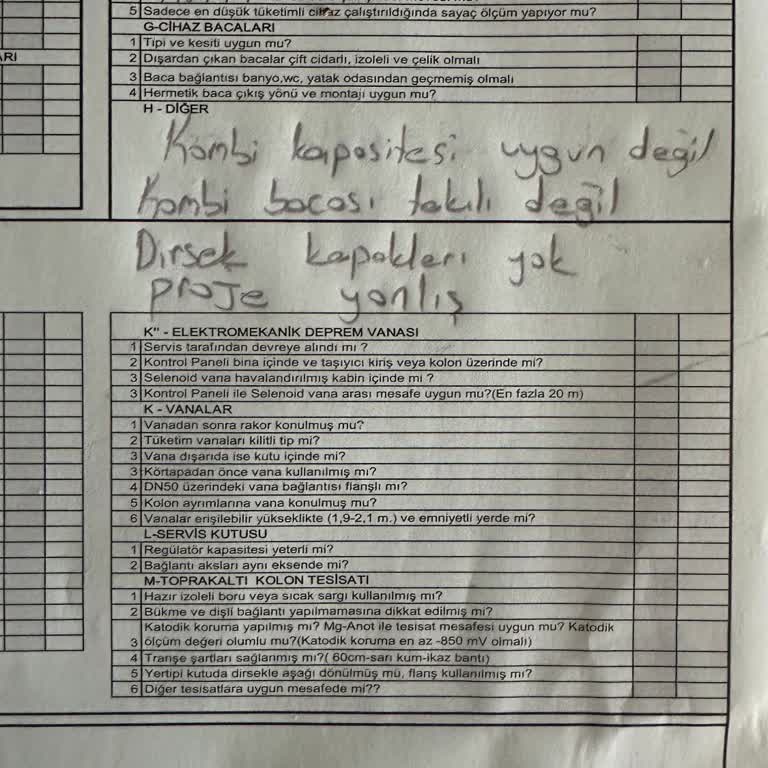 ARI
5 Sadece en düşük tüketimli cihaz çalıştırıldığında sayaç ölçüm yapıyor mu?
G-CİHAZ BACALARI
1 Tipi ve kesiti uygun mu?
2 Dışardan çıkan bacalar çift cidarlı, izoleli ve çelik olmalı
3 Baca bağlantısı banyo,wc, yatak odasından geçmemiş olmalı
4 Hermetik baca çıkış yönü ve montajı uygun mu?
H - DİĞER
Kombi kapasitesi uygun değil
Kombi bacası takılı değil
Dirsek kapakları yok
proje yanlış
K" - ELEKTROMEKANİK DEPREM VANASI
1 Servis tarafından devreye alındı mı ?
2 Kontrol Paneli bina içinde ve taşıyıcı kiriş veya kolon üzerinde mi?
3 Selenoid vana havalandırılmış kabin içinde mi ?
3 Kontrol Paneli ile Selenoid vana arası mesafe uygun mu?(En fazla 20 m)
K - VANALAR
1 Vanadan sonra rakor konulmuş mu?
2 Tüketim vanaları kilitli tip mi?
3 Vana dışarıda ise kutu içinde mi?
3 Körtapadan önce vana kullanılmış mı?
4 DN50 üzerindeki vana bağlantısı flanşlı mı?
5 Kolon ayrımlarına vana konulmuş mu?
6 Vanalar erişilebilir yükseklikte (1,9-2,1 m.) ve emniyetli yerde mi?
L-SERVİS KUTUSU
1 Regülatör kapasitesi yeterli mi?
2 Bağlantı aksları aynı eksende mi?
M-TOPRAKALTI KOLON TESİSATI
1 Hazır izoleli boru veya sıcak sargı kullanılmış mı?
2 Bükme ve dişli bağlantı yapılmamasına dikkat edilmiş mi?
Katodik koruma yapılmış mı? Mg-Anot ile tesisat mesafesi uygun mu? Katodik
3 ölçüm değeri olumlu mu?(Katodik koruma en az -850 mV olmalı)
4 Tranşe şartları sağlanmış mı?( 60cm-sarı kum-ikaz bantı)
5 Yertipi kutuda dirsekle aşağı dönülmüş mü, flanş kullanılmış mı?
6 Diğer tesisatlara uygun mesafede mi??